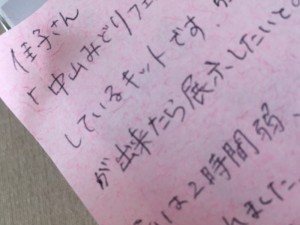 佳子さん
「中山みどりフェ
しているキットです。
が出来たら展示したいと
は2時間弱、
れました